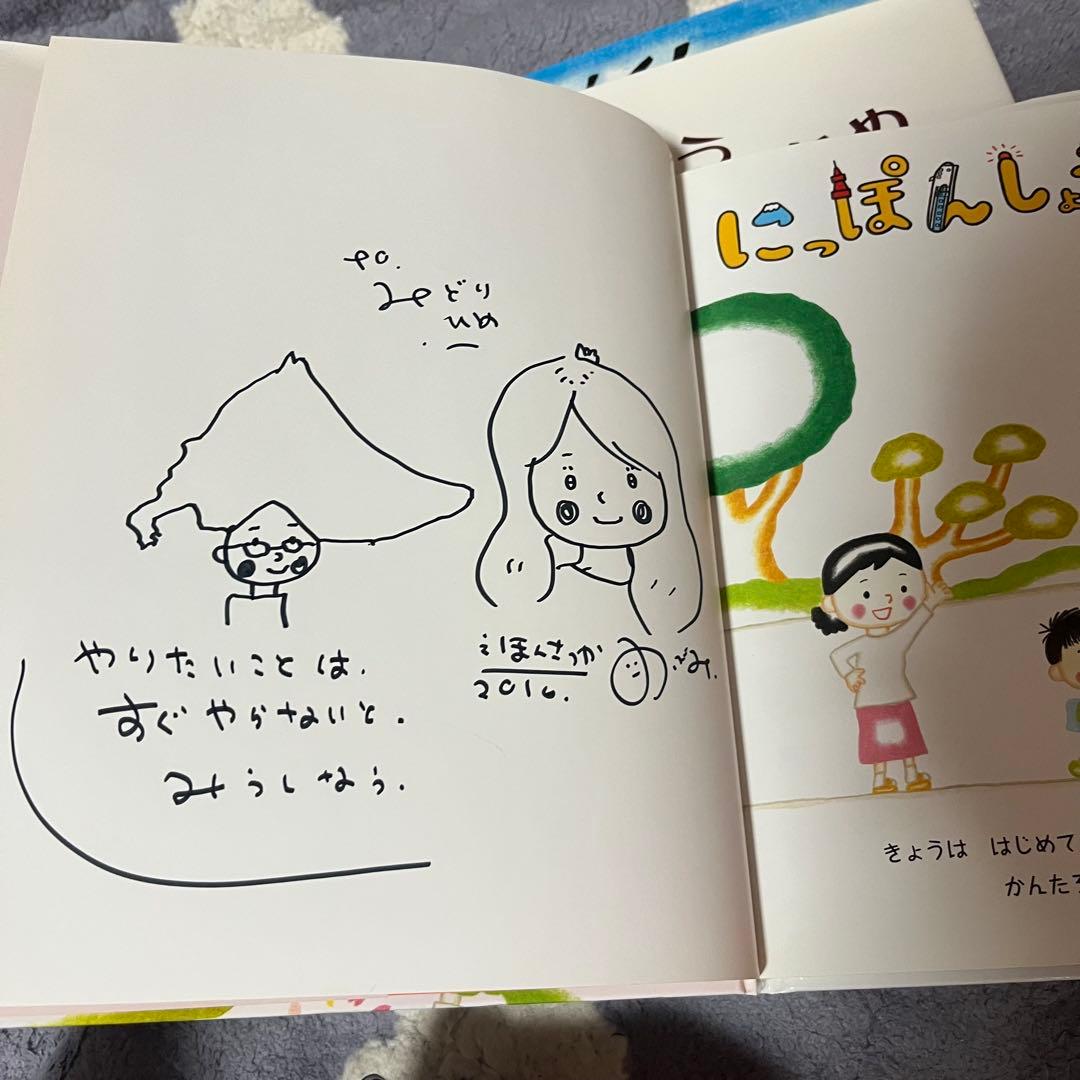 to.
みどり
ひめ
やりたいことは、
すぐやらないと、
みうしなう。
えほんさっか
2016.
う
め
にっぽんしょ
きょうは はじめて
かんたろ